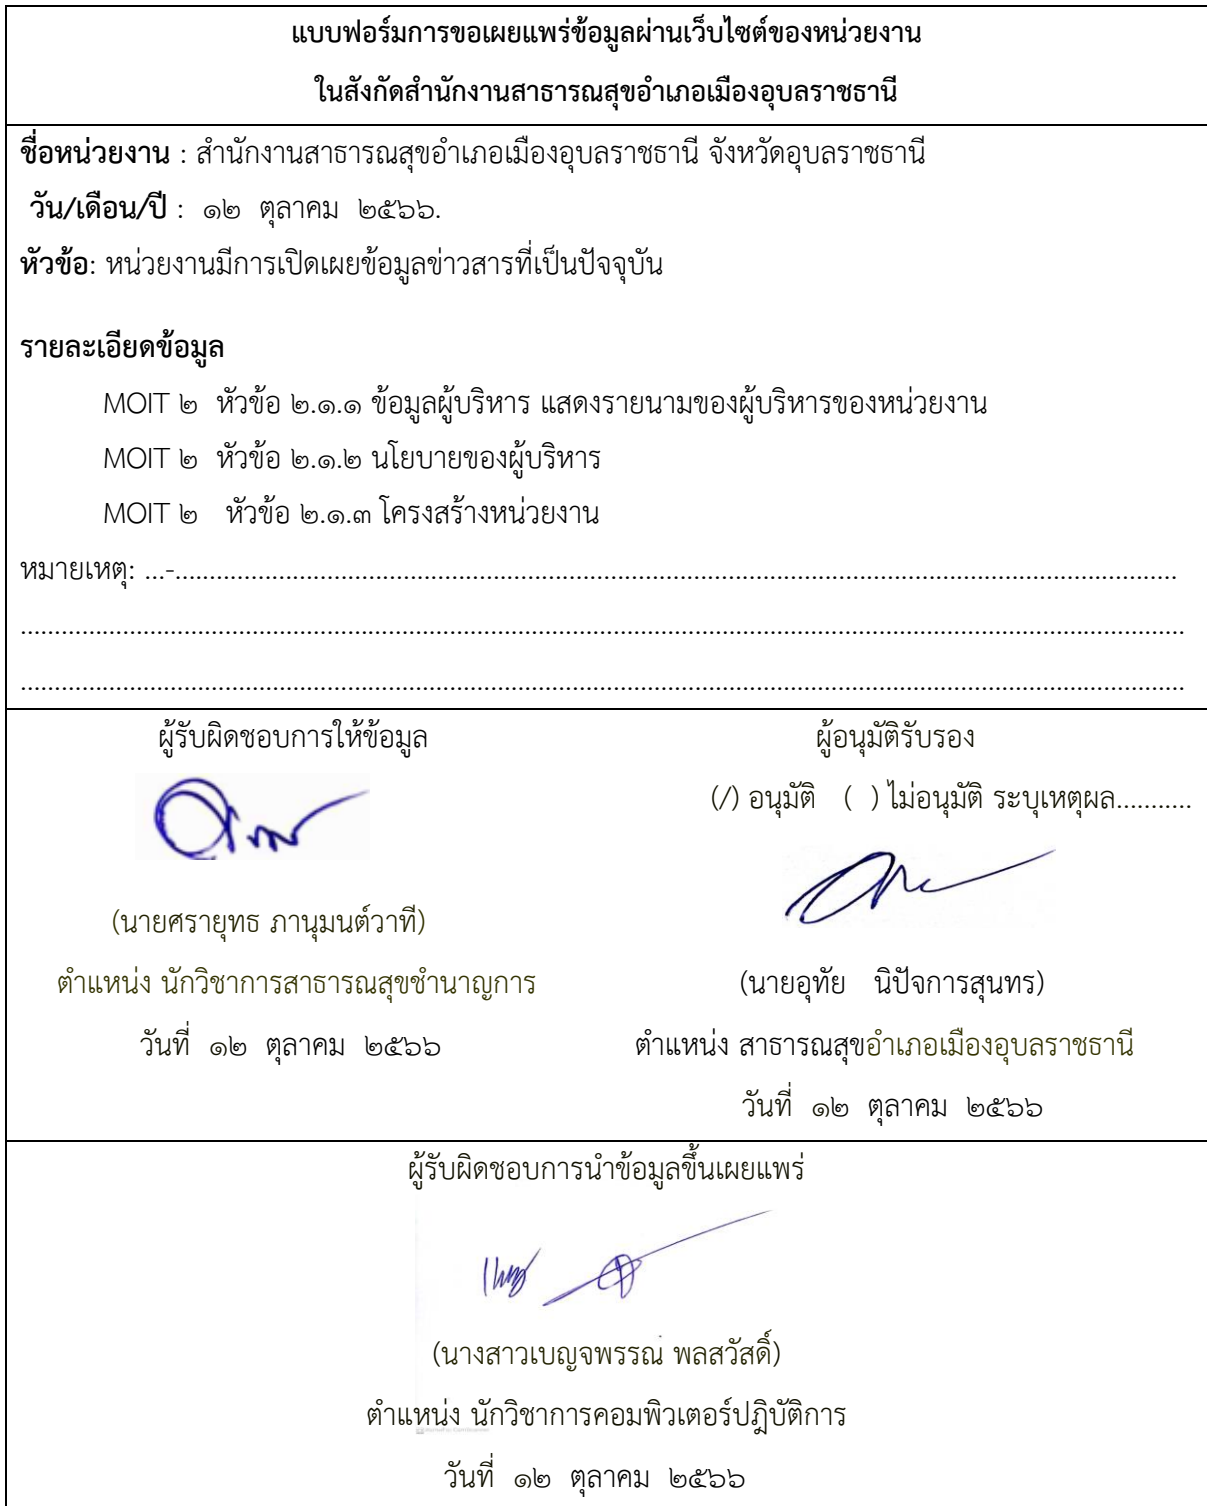 แบบฟอร์มการขอเผยแพร่ข้อมูลผ่านเว็บไซต์ของหน่วยงาน
ในสังกัดสำนักงานสาธารณสุขอำเภอเมืองอุบลราชธานี
ชื่อหน่วยงาน : สำนักงานสาธารณสุขอำเภอเมืองอุบลราชธานี จังหวัดอุบลราชธานี
วัน/เดือน/ปี : ๑๒ ตุลาคม ๒๕๖๖.
หัวข้อ: หน่วยงานมีการเปิดเผยข้อมูลข่าวสารที่เป็นปัจจุบัน
รายละเอียดข้อมูล
MOIT ๒ หัวข้อ ๒.๑.๑ ข้อมูลผู้บริหาร แสดงรายนามของผู้บริหารของหน่วยงาน
MOIT ๒ หัวข้อ ๒.๑.๒ นโยบายของผู้บริหาร
MOIT ๒ หัวข้อ ๒.๑.๓ โครงสร้างหน่วยงาน
หมายเหตุ: ...-...............................................................................................................................................
......................................................................................................................................................................
......................................................................................................................................................................
ผู้รับผิดชอบการให้ข้อมูล
(นายศรายุทธ ภานุมนต์วาที)
ตำแหน่ง นักวิชาการสาธารณสุขชำนาญการ
วันที่ ๑๒ ตุลาคม ๒๕๖๖
ผู้อนุมัติรับรอง
(/) อนุมัติ ( ) ไม่อนุมัติ ระบุเหตุผล...........
(นายอุทัย นิปัจการสุนทร)
ตำแหน่ง สาธารณสุขอำเภอเมืองอุบลราชธานี
วันที่ ๑๒ ตุลาคม ๒๕๖๖
ผู้รับผิดชอบการนำข้อมูลขึ้นเผยแพร่
(นางสาวเบญจพรรณ พลสวัสดิ์)
ตำแหน่ง นักวิชาการคอมพิวเตอร์ปฎิบัติการ
วันที่ ๑๒ ตุลาคม ๒๕๖๖